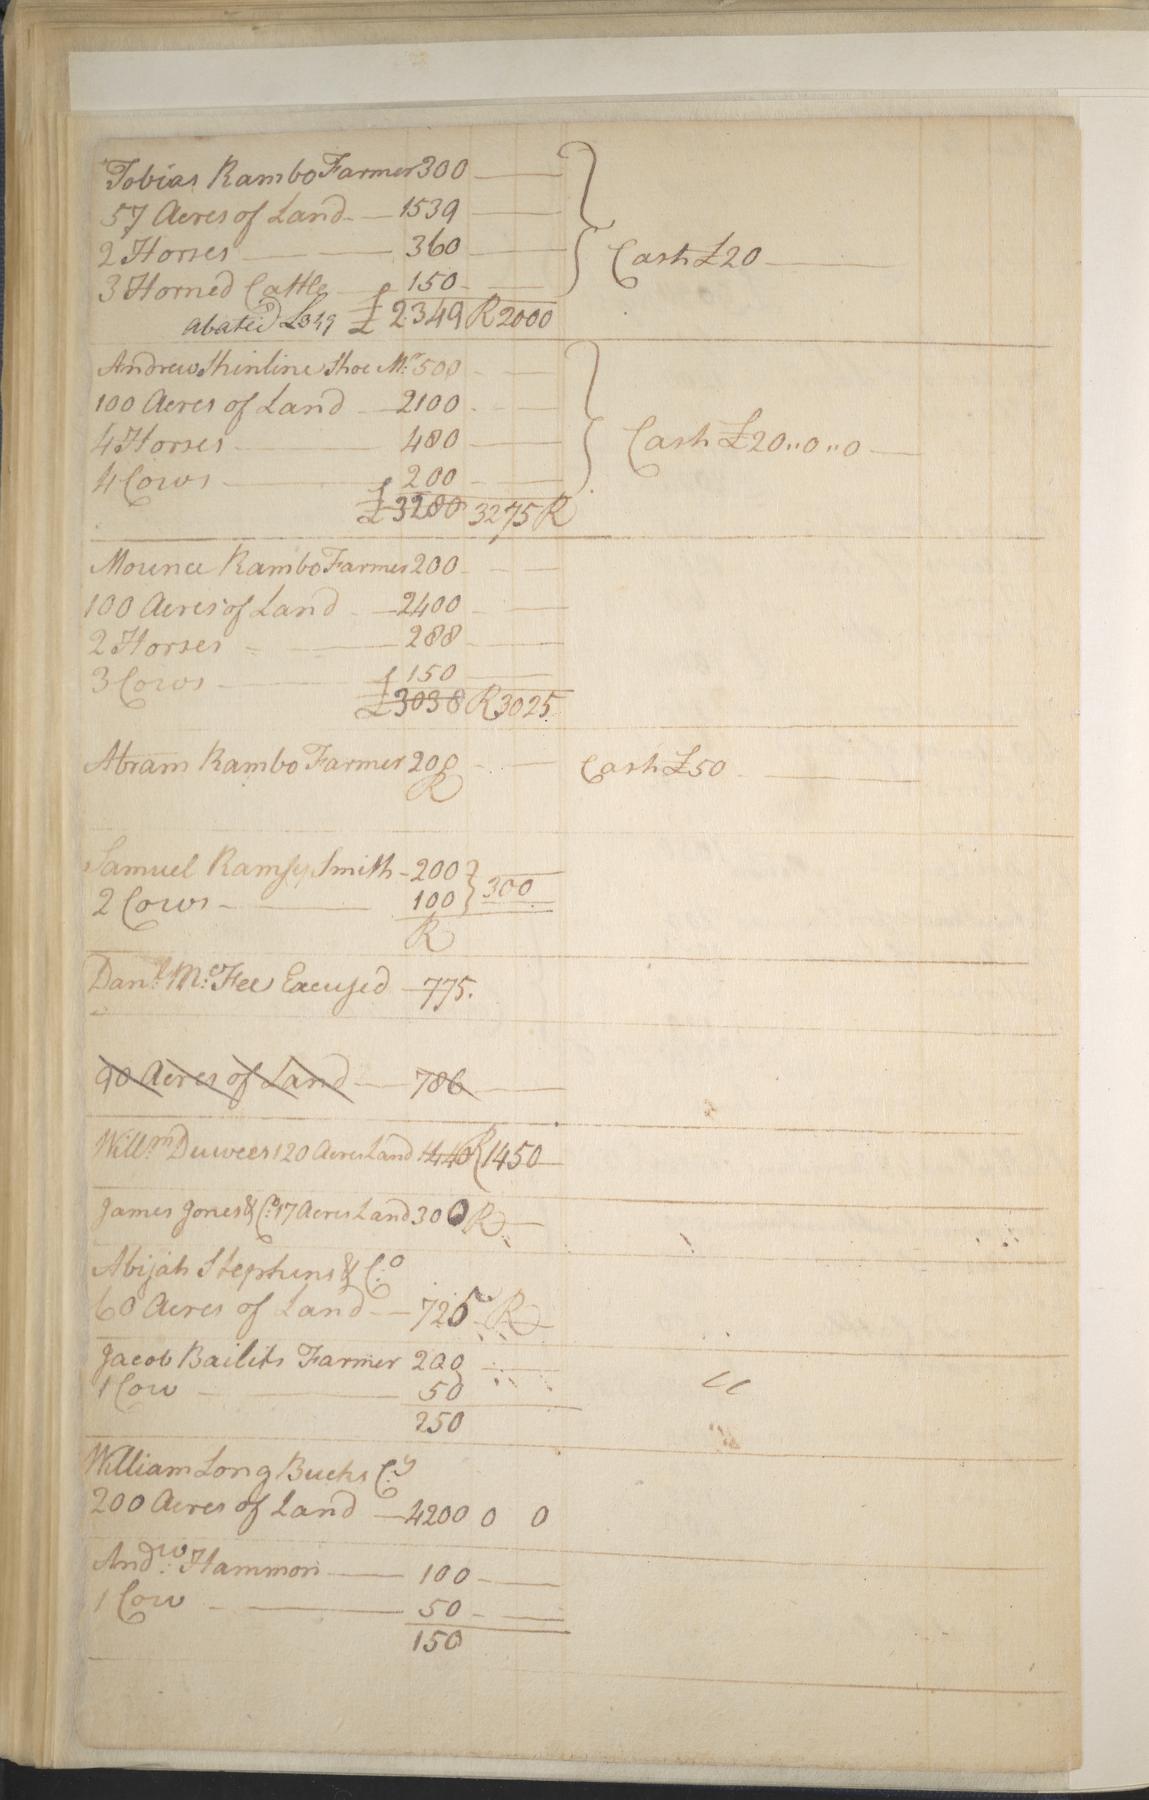 Tobias Rambo Farmer 300
57 Acres of Land 1539
2 Horses 360 Cash £20
3 Horned Cattle 150
abated £349 £2349 R 2000
Andrew Shinline Shoe Mr 500
100 Acres of Land 2100
4 Horses 480 Cash £20,,0,,0
4 Cows 200
£3280 3275 R
Mounce Rambo Farmer 200
100 Acres of Land 2400
2 Horses 288
3 Cows 150
£3038 R 3025
Abram Rambo Farmer 200 Cash £50
R
Samuel Ramsy Smith 200
2 Cows 100 300
R
Danl. McFee Excused 775.
90 Acres of Land 786
Willm Duwees 120 Acres Land 1440 R 1450
James Jones & Co. 17 Acres Land 300 R
Abijah Stephens & Co.
60 Acres of Land 725 R
Jacob Bailits Farmer 200
1 Cow 50
250
William Long Bucks Cy
200 Acres of Land 4200 0 0
Andw. Hammon 100
1 Cow 50
150